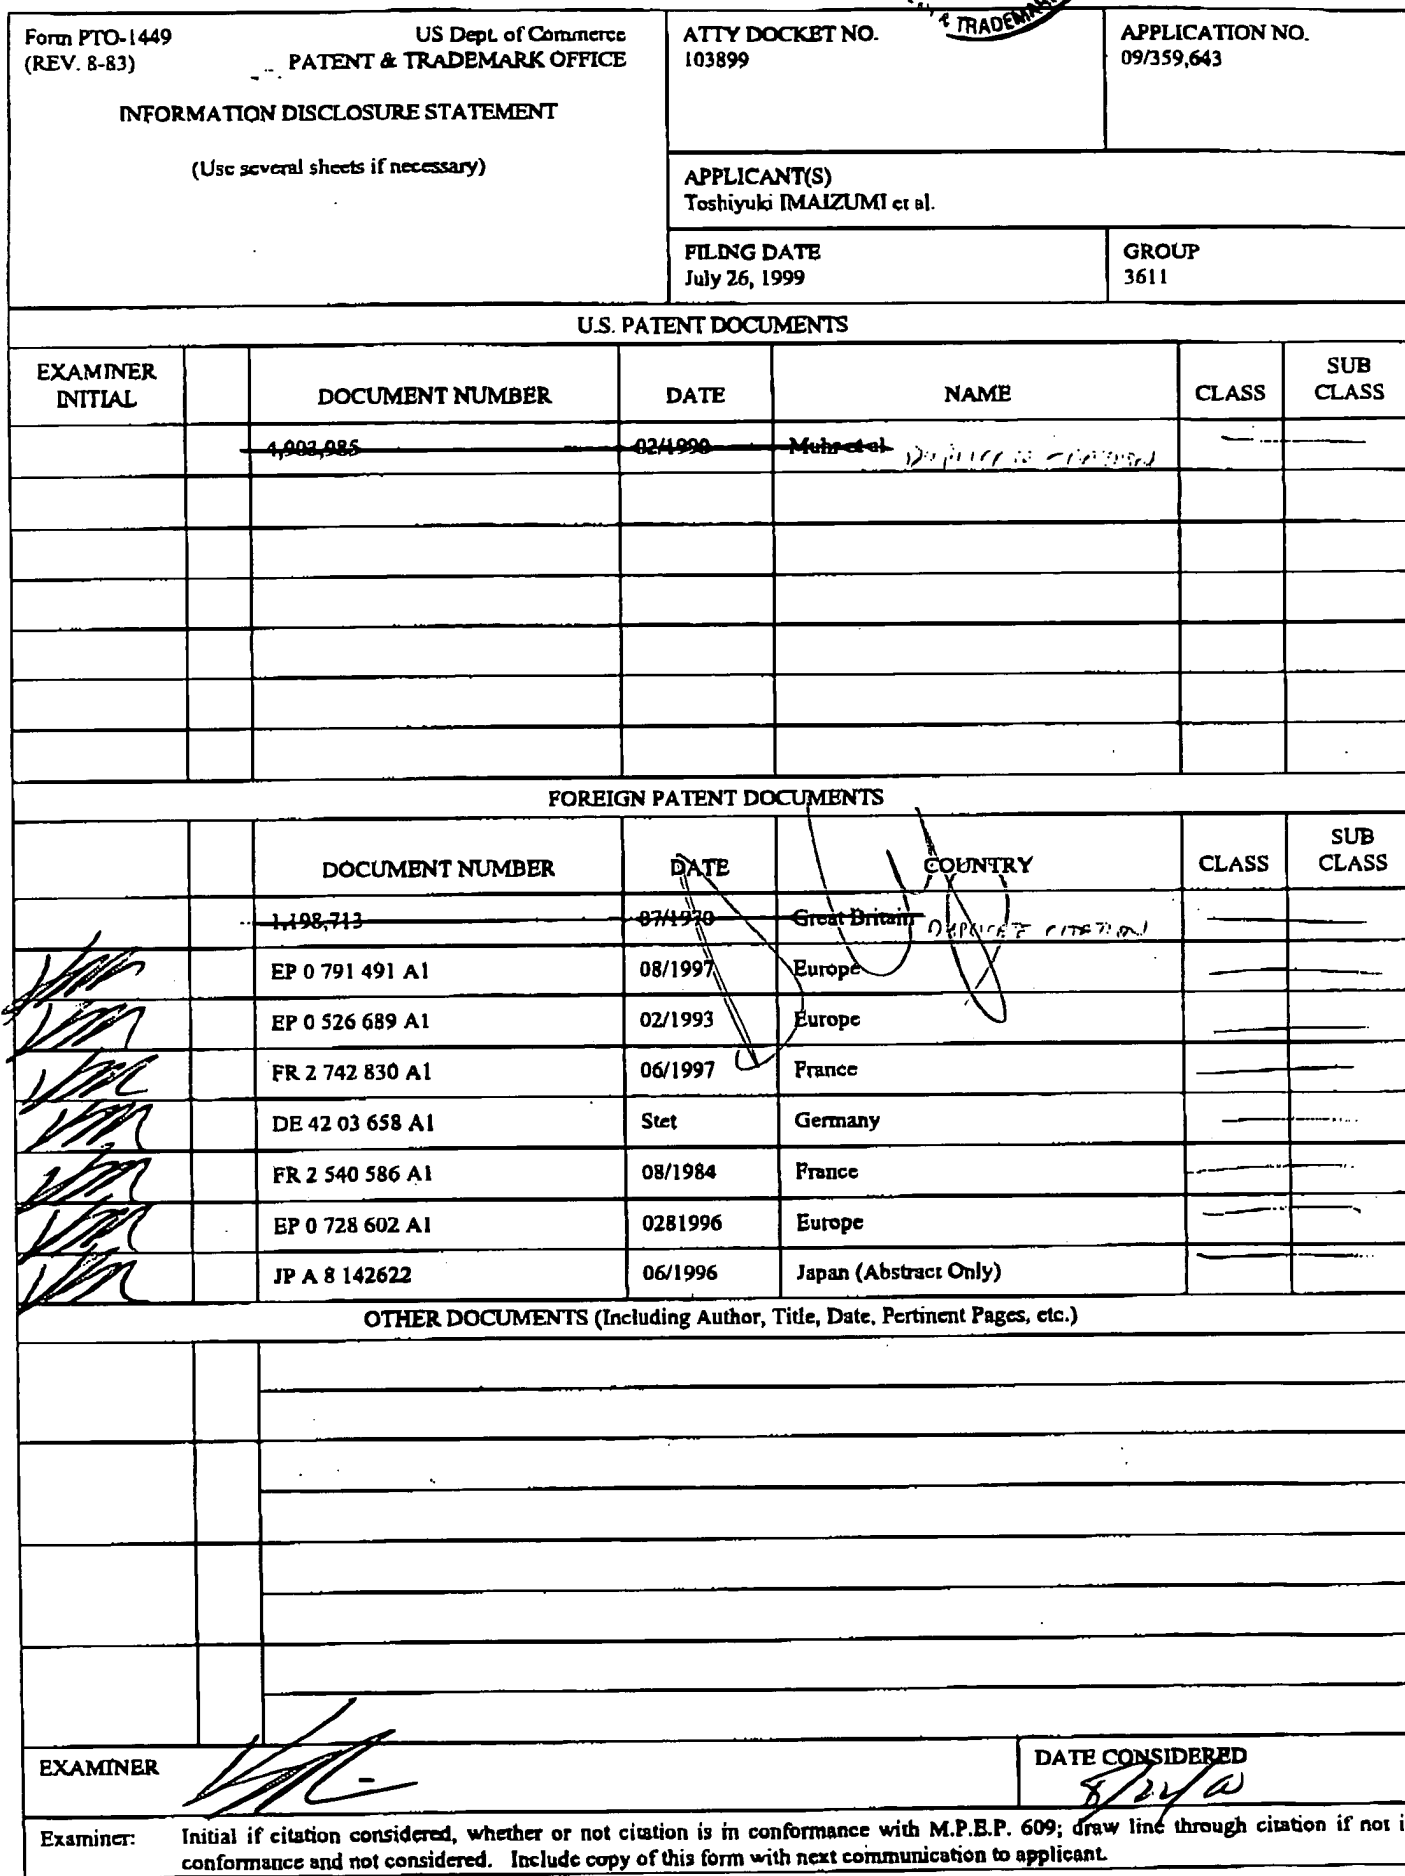 & TRADEMARK
Form PTO-1449
(REV. 8-83)
US Dept. of Commerce
PATENT & TRADEMARK OFFICE
INFORMATION DISCLOSURE STATEMENT
(Use several sheets if necessary)
ATTY DOCKET NO.
103899
APPLICATION NO.
09/359,643
APPLICANT(S)
Toshiyuki IMAIZUMI et al.
FILING DATE
July 26, 1999
GROUP
3611
U.S. PATENT DOCUMENTS
EXAMINER
INITIAL
DOCUMENT NUMBER
DATE
NAME
CLASS
SUB
CLASS
4,903,985 02/1990 Muhr et al DUPLICATE CITATION
FOREIGN PATENT DOCUMENTS
DOCUMENT NUMBER
DATE
COUNTRY
CLASS
SUB
CLASS
1,198,713 07/1970 Great Britain DUPLICATE CITATION
EP 0 791 491 A1 08/1997 Europe
EP 0 526 689 A1 02/1993 Europe
FR 2 742 830 A1 06/1997 France
DE 42 03 658 A1 Stet Germany
FR 2 540 586 A1 08/1984 France
EP 0 728 602 A1 0281996 Europe
JP A 8 142622 06/1996 Japan (Abstract Only)
OTHER DOCUMENTS (Including Author, Title, Date, Pertinent Pages, etc.)
EXAMINER
DATE CONSIDERED
Examiner: Initial if citation considered, whether or not citation is in conformance with M.P.E.P. 609; draw line through citation if not i
conformance and not considered. Include copy of this form with next communication to applicant.